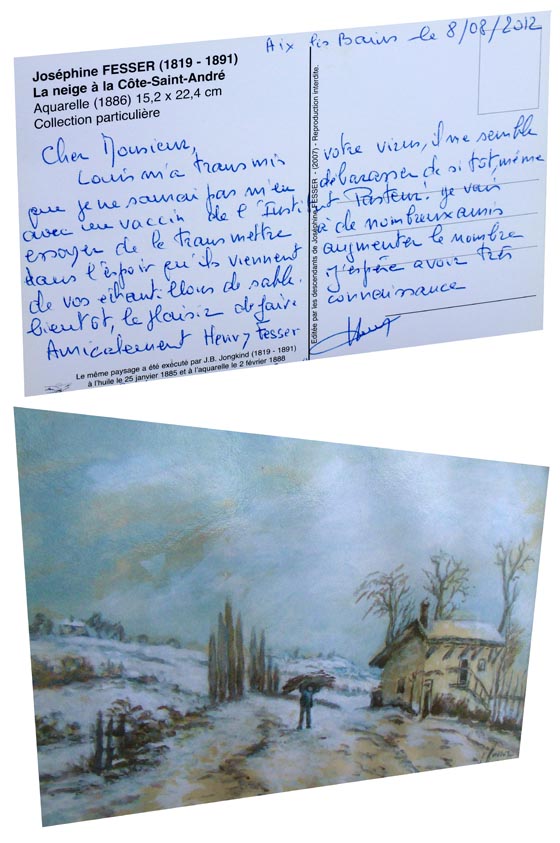 Aix les Bains le 8/08/2012
Joséphine FESSER (1819 - 1891)
La neige à la Côte-Saint-André
Aquarelle (1886) 15,2 x 22,4 cm
Collection particulière
Cher Monsieur,
Louis m'a transmis votre virus, il me semble
que je ne saurai pas m'en débarasser de si tôt, même
avec un vaccin de l'Institut Pasteur! je vais
essayer de le transmettre à de nombreux amis
dans l'espoir qu'ils viennent augmenter le nombre
de vos échantillons de sable. j'espère avoir très
bientôt, le plaisir de faire connaissance
Amicalement Henry Fesser
Le même paysage a été exécuté par J.B. Jongkind (1819 - 1891)
à l'huile le 25 janvier 1885 et à l'aquarelle le 2 février 1888
Editée par les descendants de Joséphine FESSER - (2007) - Reproduction interdite.